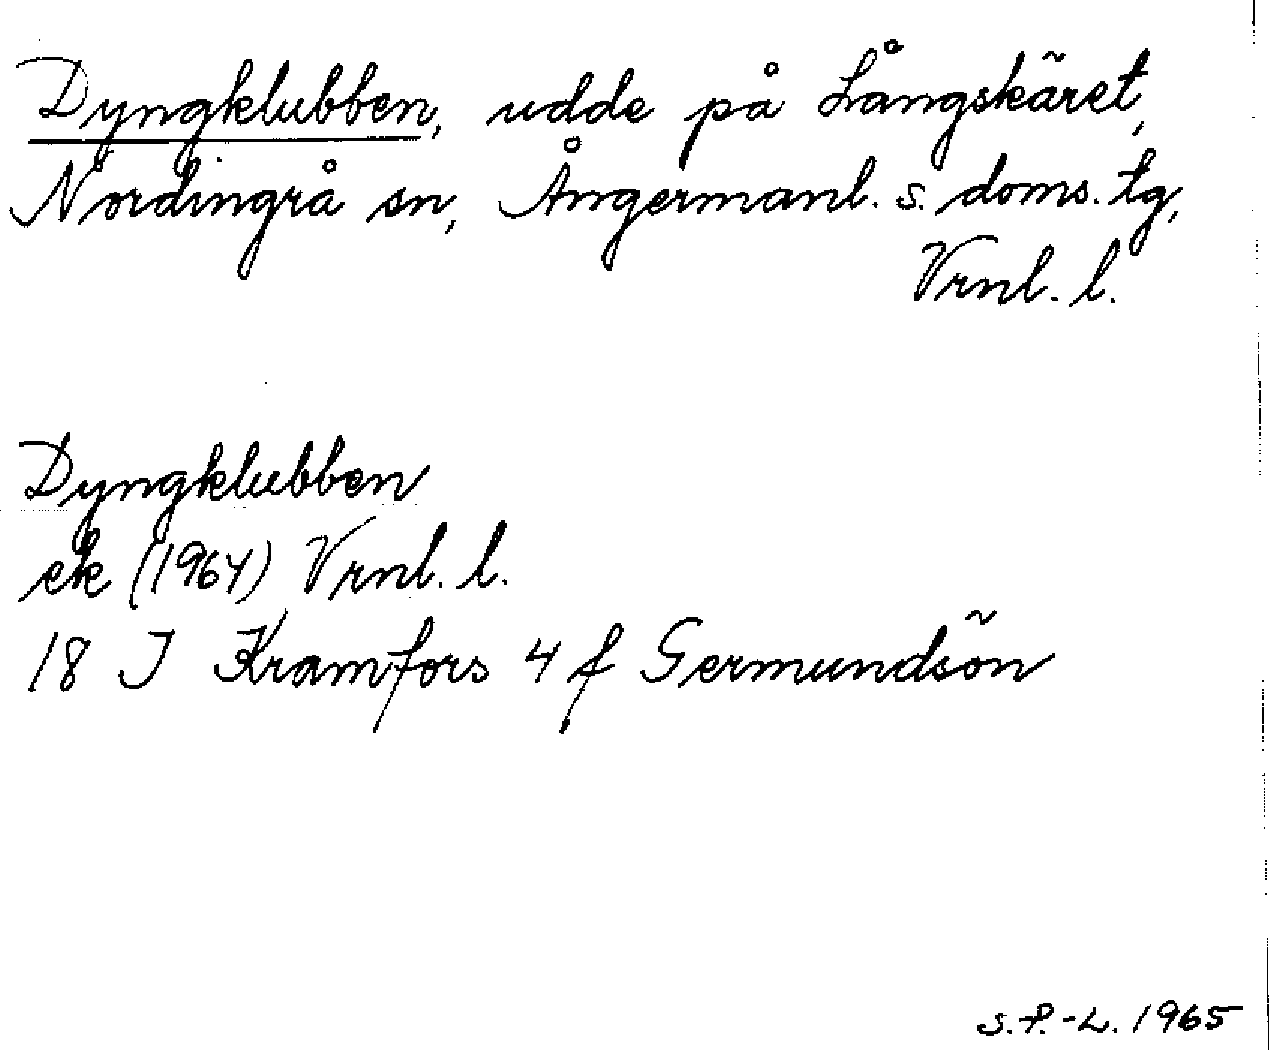 Dyngklubben, udde på Långskäret,
Nordingrå sn, Ångermanl. s. doms. tg,
Vrnl. l.
Dyngklubben
ek (1964) Vrnl. l.
18 J Kramfors 4 f Germundsön
S.P.-L. 1965